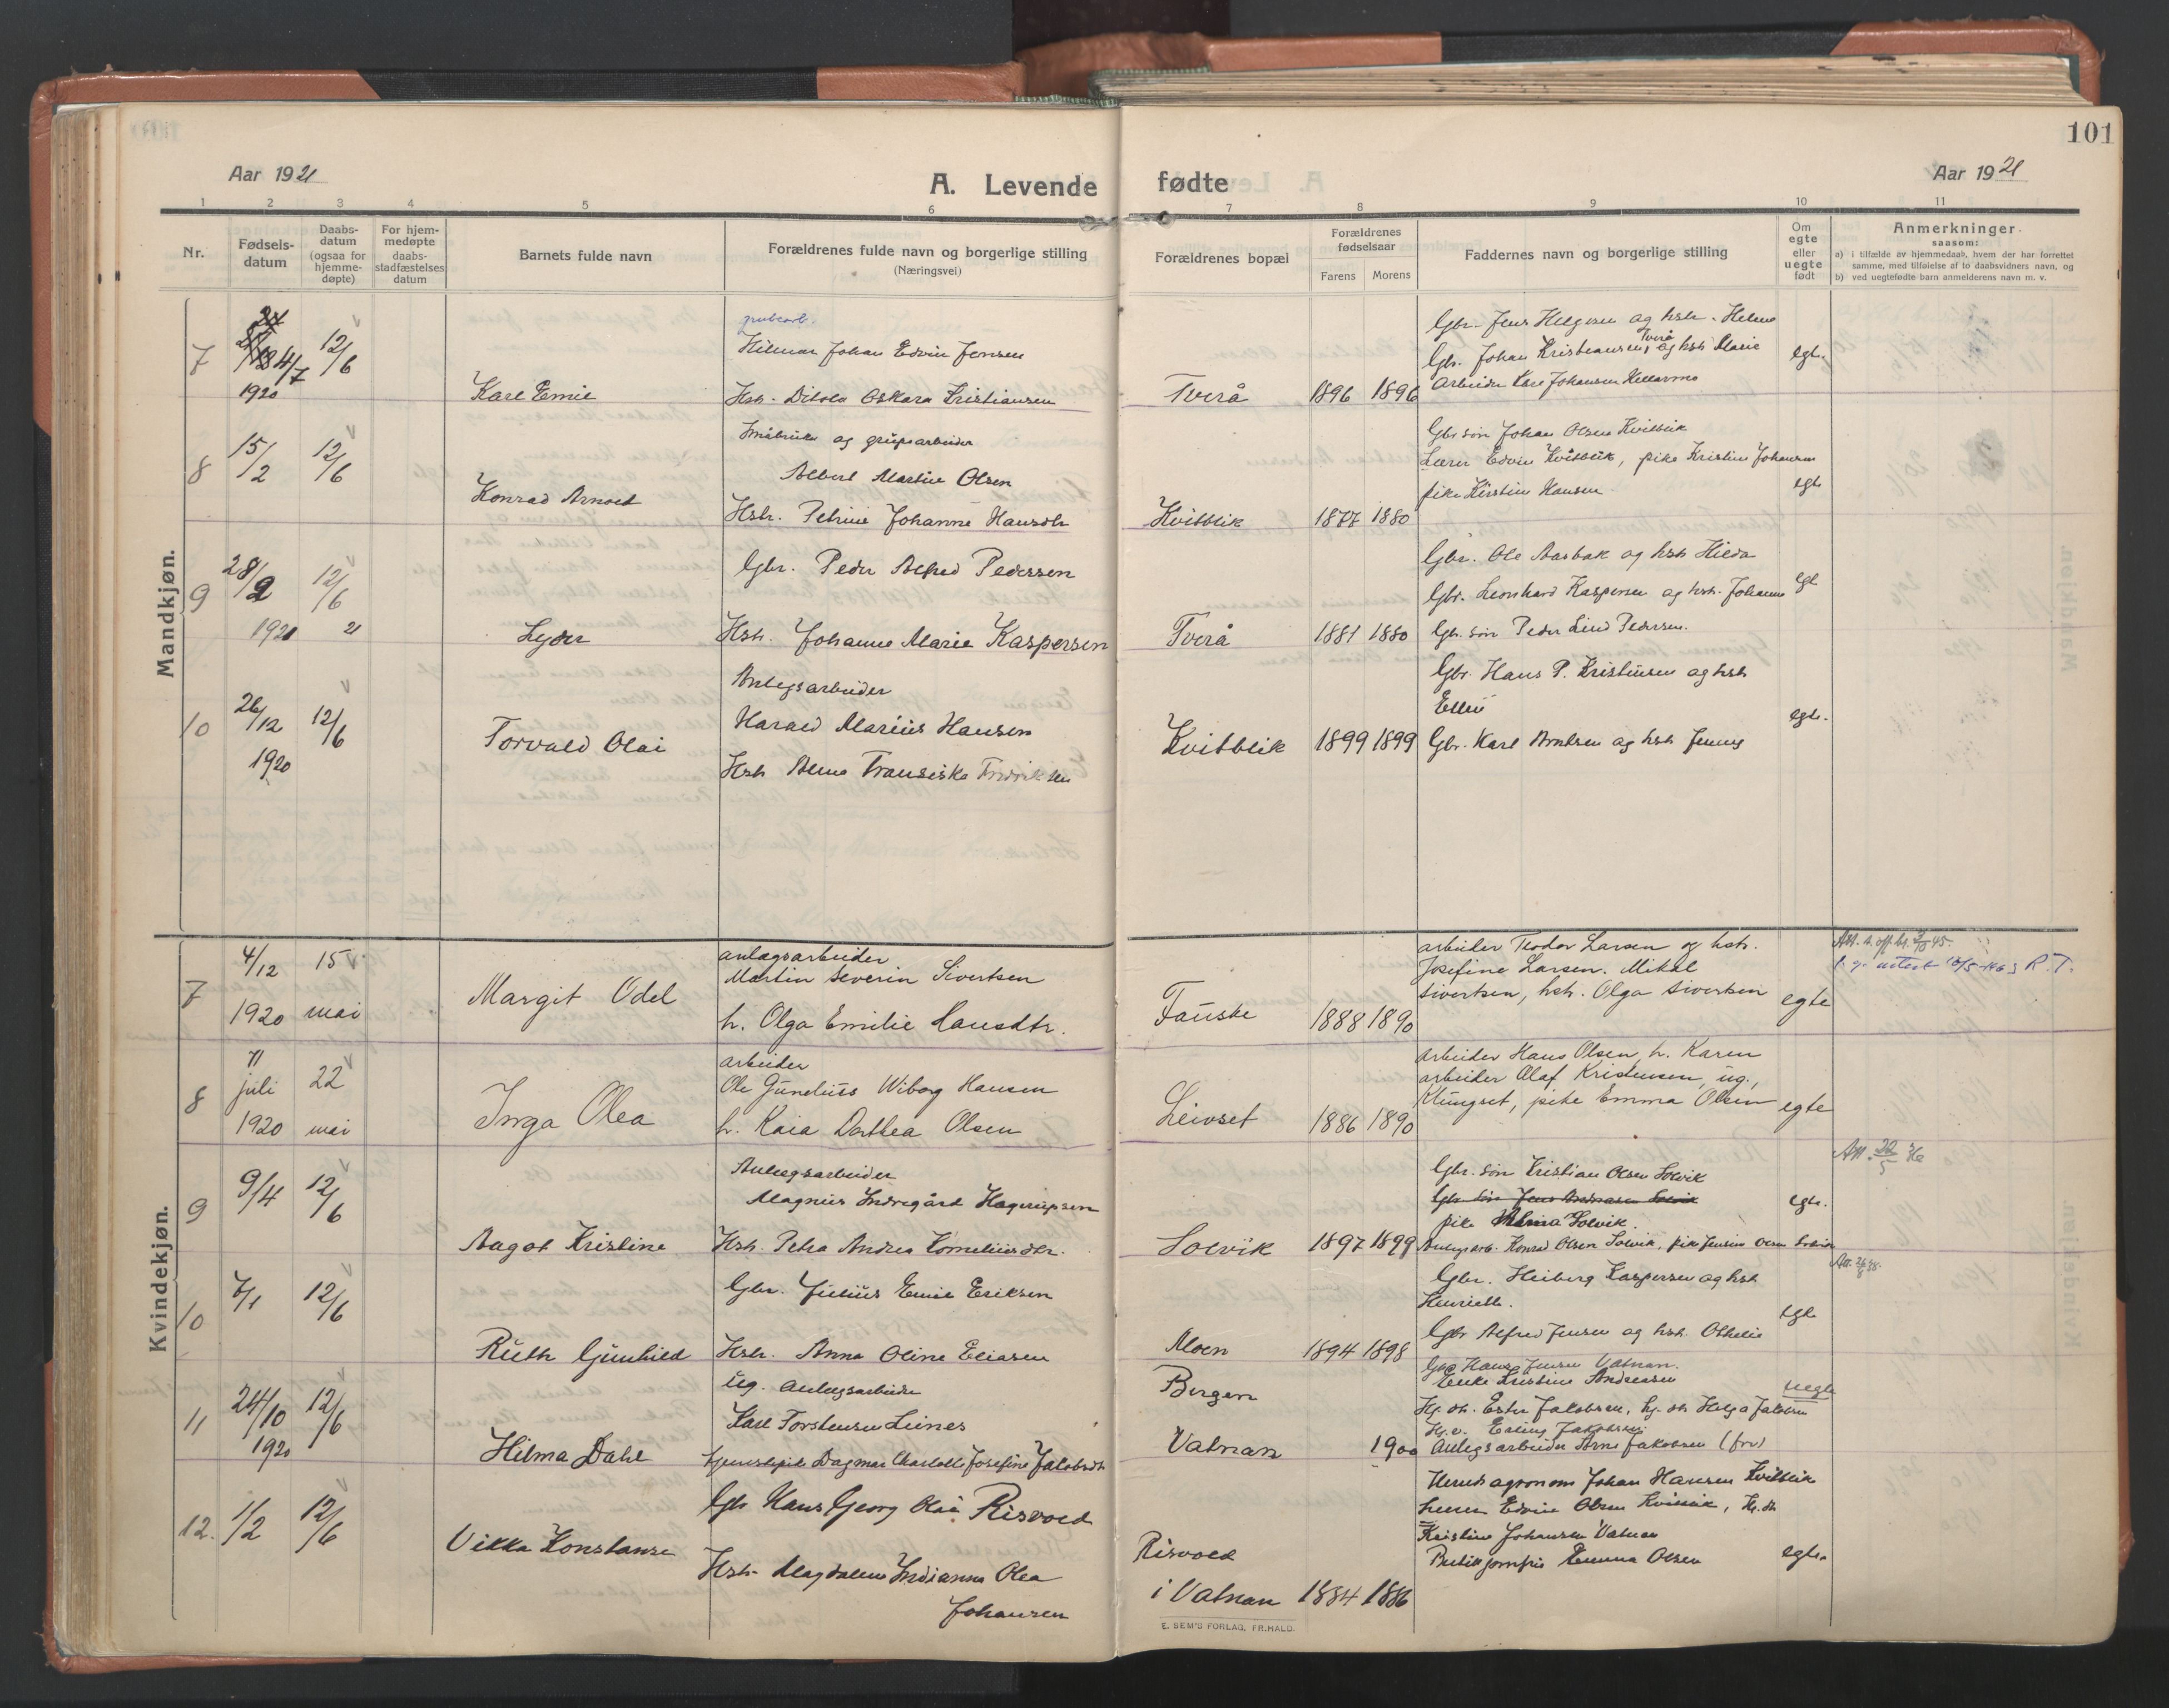 101
Aar 1921
A. Levende fødte
Aar 1921
1 2 3 4 5 6 7 8 9 10 11
Nr.
Fødsels-
datum
Daabs-
datum
(ogsaa for
hjemme-
døpte)
For hjem-
medøpte
daabs-
stadfæstelses
datum
Barnets fulde navn
Forældrenes fulde navn og borgerlige stilling
(Næringsvei)
Forældrenes bopæl
Forældrenes
fødselsaar
Farens Morens
Faddernes navn og borgerlige stilling
Om
egte
eller
uegte
født
Anmerkninger.
saasom:
a) i tilfælde av hjemmedaab, hvem der har forrettet
samme, med tilføielse af to daabsvidners navn, og
b) ved uegtefødte barn anmelderens navn m. v.
Mandkjøn.
7 4/7 1920 12/6
Karl Emil
Hilmar Johan Edvin Jensen
Hstr. Oskara Kristiansen
Tverå 1896 1896
Gbr. Jens Helgesen og hstr. Helene
Gbr. Johan Kristiansen, Tverå og hstr Marie
Arbeider Kare Johansen
egte
8 15/2 12/6
Konrad Arnolt
Småbruker og grubearbeider
Albert Martin Olsen
Hstr. Petrine Johanne Hansdtr
Kvitblik 1877 1880
Gbr søn Johan Olsen Kvitblik
Lærer Edvin Kvitblik, pike Kristine Johansen
pike Kirstine Hansen
egte
9 28/2 1921 12/6 21
Lyder
Gbr. Peder Alfred Pedersen
Hstr. Johanne Marie Kaspersen
Tverå 1881 1880
Gbr. Ole Aasbak og hstr Hilda
Gbr. Leonhard Kaspersen og hstr. Johanne
Gbr. søn Peder Lind Pedersen.
egte
10 26/12 1920 12/6
Torvald Olai
Anlegsarbeider
Harald Marius Hansen
Hstr Alma Fransiska Fredriksen
Kvitblik 1899 1899
Gbr. Hans P. Kristensen og hstr
Ellen
Gbr. Karl Arntsen og hstr Jenny
egte.
Kvindekjøn.
7 4/12 1920 15 mai
Margit Odel
anlægsarbeider
Martin Severin Sivertsen
h. Olga Emilie Hansdtr.
Fauske 1888 1890
arbeider Teodor Larsen og hstr.
Josefine Larsen. Mikal
Sivertsen, hstr. Olga Sivertsen
egte
R. T.
8 11 juli 1920 22 mai
Inga Olea
arbeider
Ole Gunelius Wiborg Hansen
h. Kaia Dorthea Olsen
Leivset 1886 1890
arbeider Hans Olsen, h. Karen
arbeider Olaf Kristensen, ug.,
Klungset, pike Emma Olsen
egte
9 9/4 12/6
Aagot Kristine
Anlegsarbeider
Magnus Indregård Hagerupsen
Hstr. Petra Andrea Korneliusdtr.
Solvik 1897 1899
Gbr. søn Kristian Olsen Solvik
Gbr. søn Jens Andreasen Solvik
pike Alma Solvik.
Anlegsarb. Konrad Olsen Solvik, pike Jensine Olsen Solvik
egte.
10 7/1 12/6
Ruth Gunhild
Gbr. Julius Emil Eriksen
Hstr. Anna Oline Eliasen
Moen 1894 1898
Gbr. Heiberg Kaspersen og hstr
Henriette.
Gbr Alfred Jensen og hstr. Othelie
egte
11 24/10 1920 12/6
Hilma Dahl
Ug. Anlegsarbeider
Karl Torstensen Leines
tjenestepike Dagmar Charlotte Josefine Jakobsdtr
Bergen
Vatnan 1900
Gbr Hans Jensen Vatnan.
Enke Kristine Andreasen
Hg. dtr. Ester Jakobsen, hg. dtr Helga Jakobsen
Hg. s. Erling Jakobsen
Anlegsarbeider Arne Jakobsen (far)
uegte
12. 1/2 12/6
Vikka Konstanse
Gbr Hans Georg Olai Risvold
Hstr. Magdalene Indianna Olea
Johansen
Risvold
i Vatnan 1884 1886
Herredsagronom Johan Hansen Kvitblik
Lærer Edvin Olsen Kvitblik, Hg. dtr
Kristine Johansen Vatnan
Butikjomfru Emma Olsen
egte.
E. SEM'S FORLAG, FR.HALD.